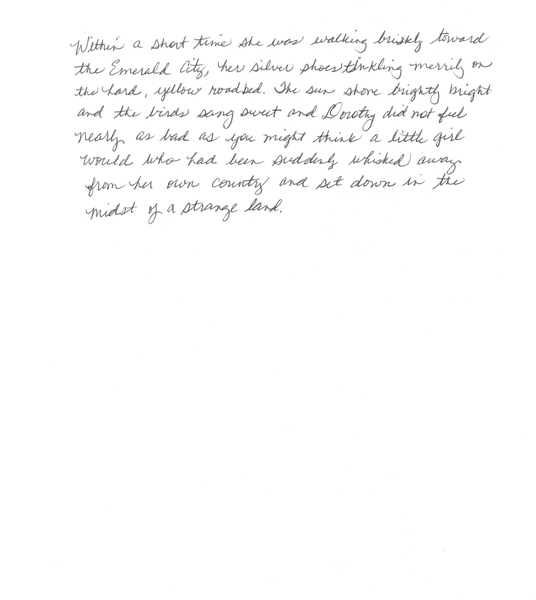 Within a short time she was walking briskly toward
the Emerald City, her silver shoes tinkling merrily on
the hard, yellow roadbed. The sun shone brightly bright
and the birds sang sweet and Dorothy did not feel
nearly as bad as you might think a little girl
would who had been suddenly whisked away
from her own country and set down in the
midst of a strange land.